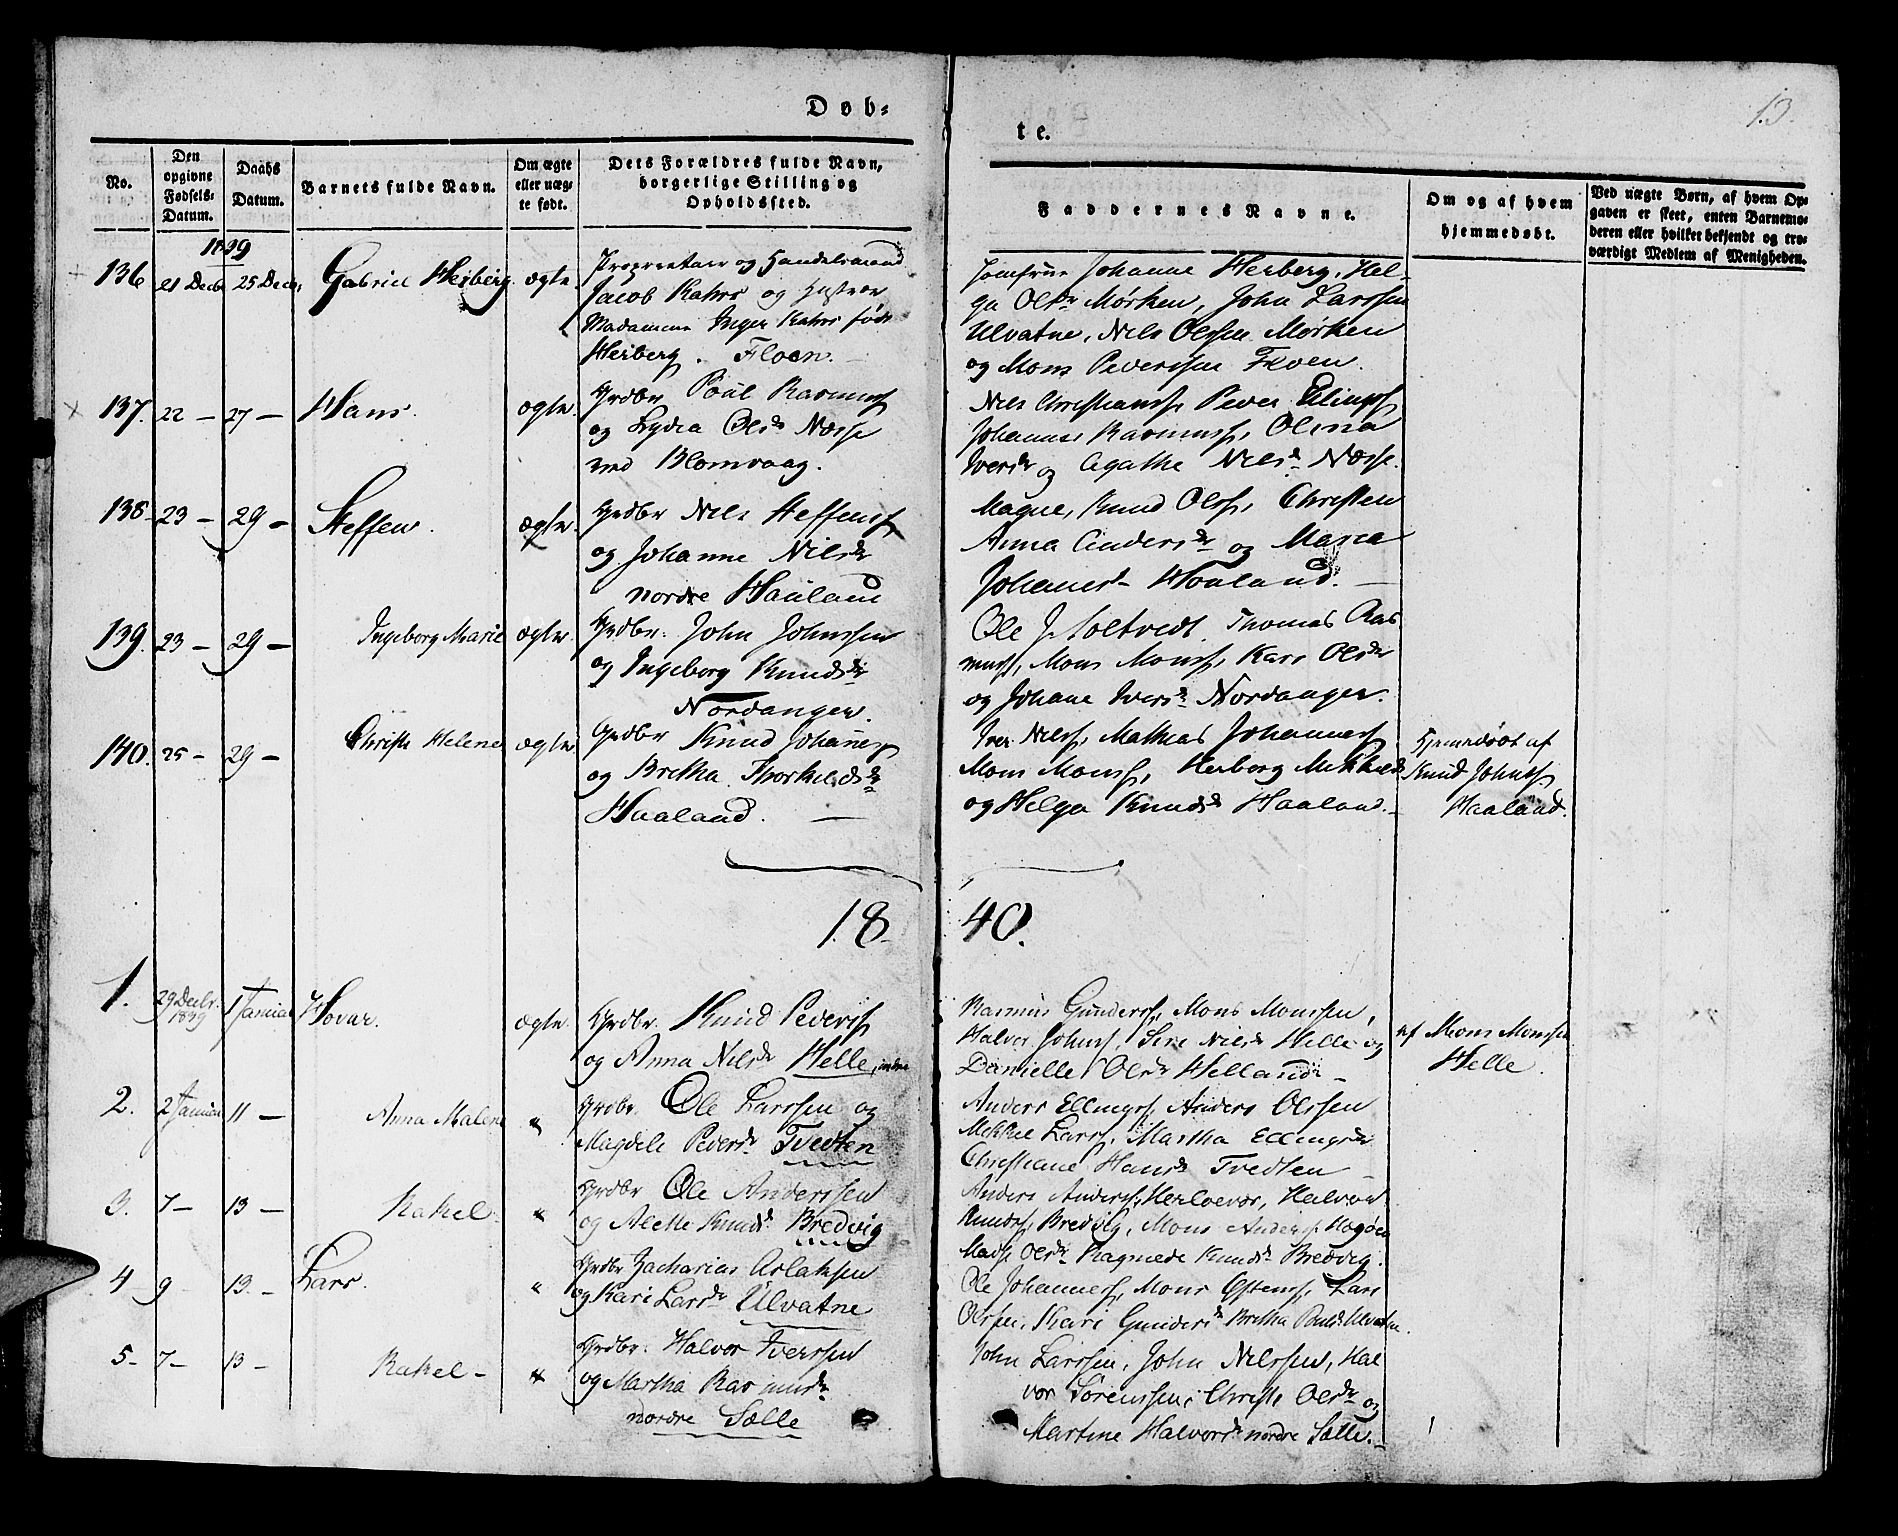 13.
Døb-
te.
No.
Den opgivne Fødsels-Datum.
Daabs Datum.
Barnets fulde Navn.
Om ægte eller uæg-te født.
Dets Forældres fulde Navn, borgerlige Stilling og Opholdssted.
Faddernes Navne.
Om og af hvem hjemmedøbt.
Ved uægte Børn, af hvem Op-gaven er skeet, enten Barnemo-deren eller hvilket bekjendt og tro-værdigt Medlem af Menigheden.
1839
136 21 Decbr 25 Decbr, Gabriel Herberg. ægte.
Proprietair og Handelsmand
Jacob Rahrs og Hustrue
Madamme Inger Rahrs født
Herberg. Floen. —
Jomfrue Johanne Herberg, Hel-
ga Olsdr Mørken, John Larssen
Ulvatne, Nils Olssen Mørken
og Mons Pederssen Floen.
137. 22 — 27 — Hans. ægte.
Grdbr Poul Rasmuss
og Lydia Olsdr Næsse
ved Blomvaag.
Nils Christians, Peder Ellings
Johannes Rasmuss, Olina
Iversdr og Agathe Nilsdr Næsse.
138. 23 — 29 — Steffen. ægte.
Grdbr Nils Steffens
og Johanne Nilsdr
nordre Haaland
Magne, Knud Olss, Christen
Anna Andersdr og Maria
Johannesdr Haaland. —
139. 23 — 29 — Ingeborg Marie ægte.
Grdbr. John Johnssen
og Ingeborg Knudsdr
Nordanger.
Ole J. Toltvedt. Thomas Ras
muss, Mons Monss, Kari Olsdr
og Johane Iversdr Nordanger.
140. 25 — 29 — Christi Helene ægte
Grdbr Knud Johannes
og Bretha Thorkildsdr
Haaland. —
Iver Nilss, Mathias Johanness
Mons Monss, Herborg Mikkelsdr
og Helga Knudsdr Haaland. -
Hjemmedøbt af
Knud Johness
Haaland.
18 40.
1. 29 Decbr. 1839 1 Januar Hovar. ægte.
Grdbr. Knud Peders
og Anna Nilsdr Helle, indre
Rasmus Gunderss, Mons Monssen,
Halvor Johnss, Siri Nilsdr Helle og
Danielle Olsdr Helland —
af Mons Monssen
Helle.
2. 2 Januar 11 — Anna Malene "
Grdbr. Ole Larssen og
Magdele Pedersdr Tvedten
Anders Ellings, Anders Olssen
Mikkel Larss, Martha Ellingsdr
Christiane Hansdr Tvedten —
3. 7 — 13 — Rakel — "
Grdbr Ole Anderssen
og Alette Knudsdr Bredvig
Anders Anderss, Herloevær, Halvor
Knudss, Bredvig, Mons Anderss Hagøen
Olsdr Ragnilde Knudsdr Bredvig.
4 9 13. — Lars. "
Grdbr Zacharias Aslaksen
og Kari Larsdr Ulvatne
Ole Johanness, Mons Østenss, Lars
Olssen, Kari Gundersdr Bretha Poulsdr Ulvatne.
5 — 7 — 13 — Rakel — "
Grdbr. Halvor Iverssen
og Martha Rasmusdr
nordre Sælle
John Larssen, John Nilssen, Hal
vor Sørenssen, Christi Olsdr og
Martine Halvorsdr nordre Sælle. —